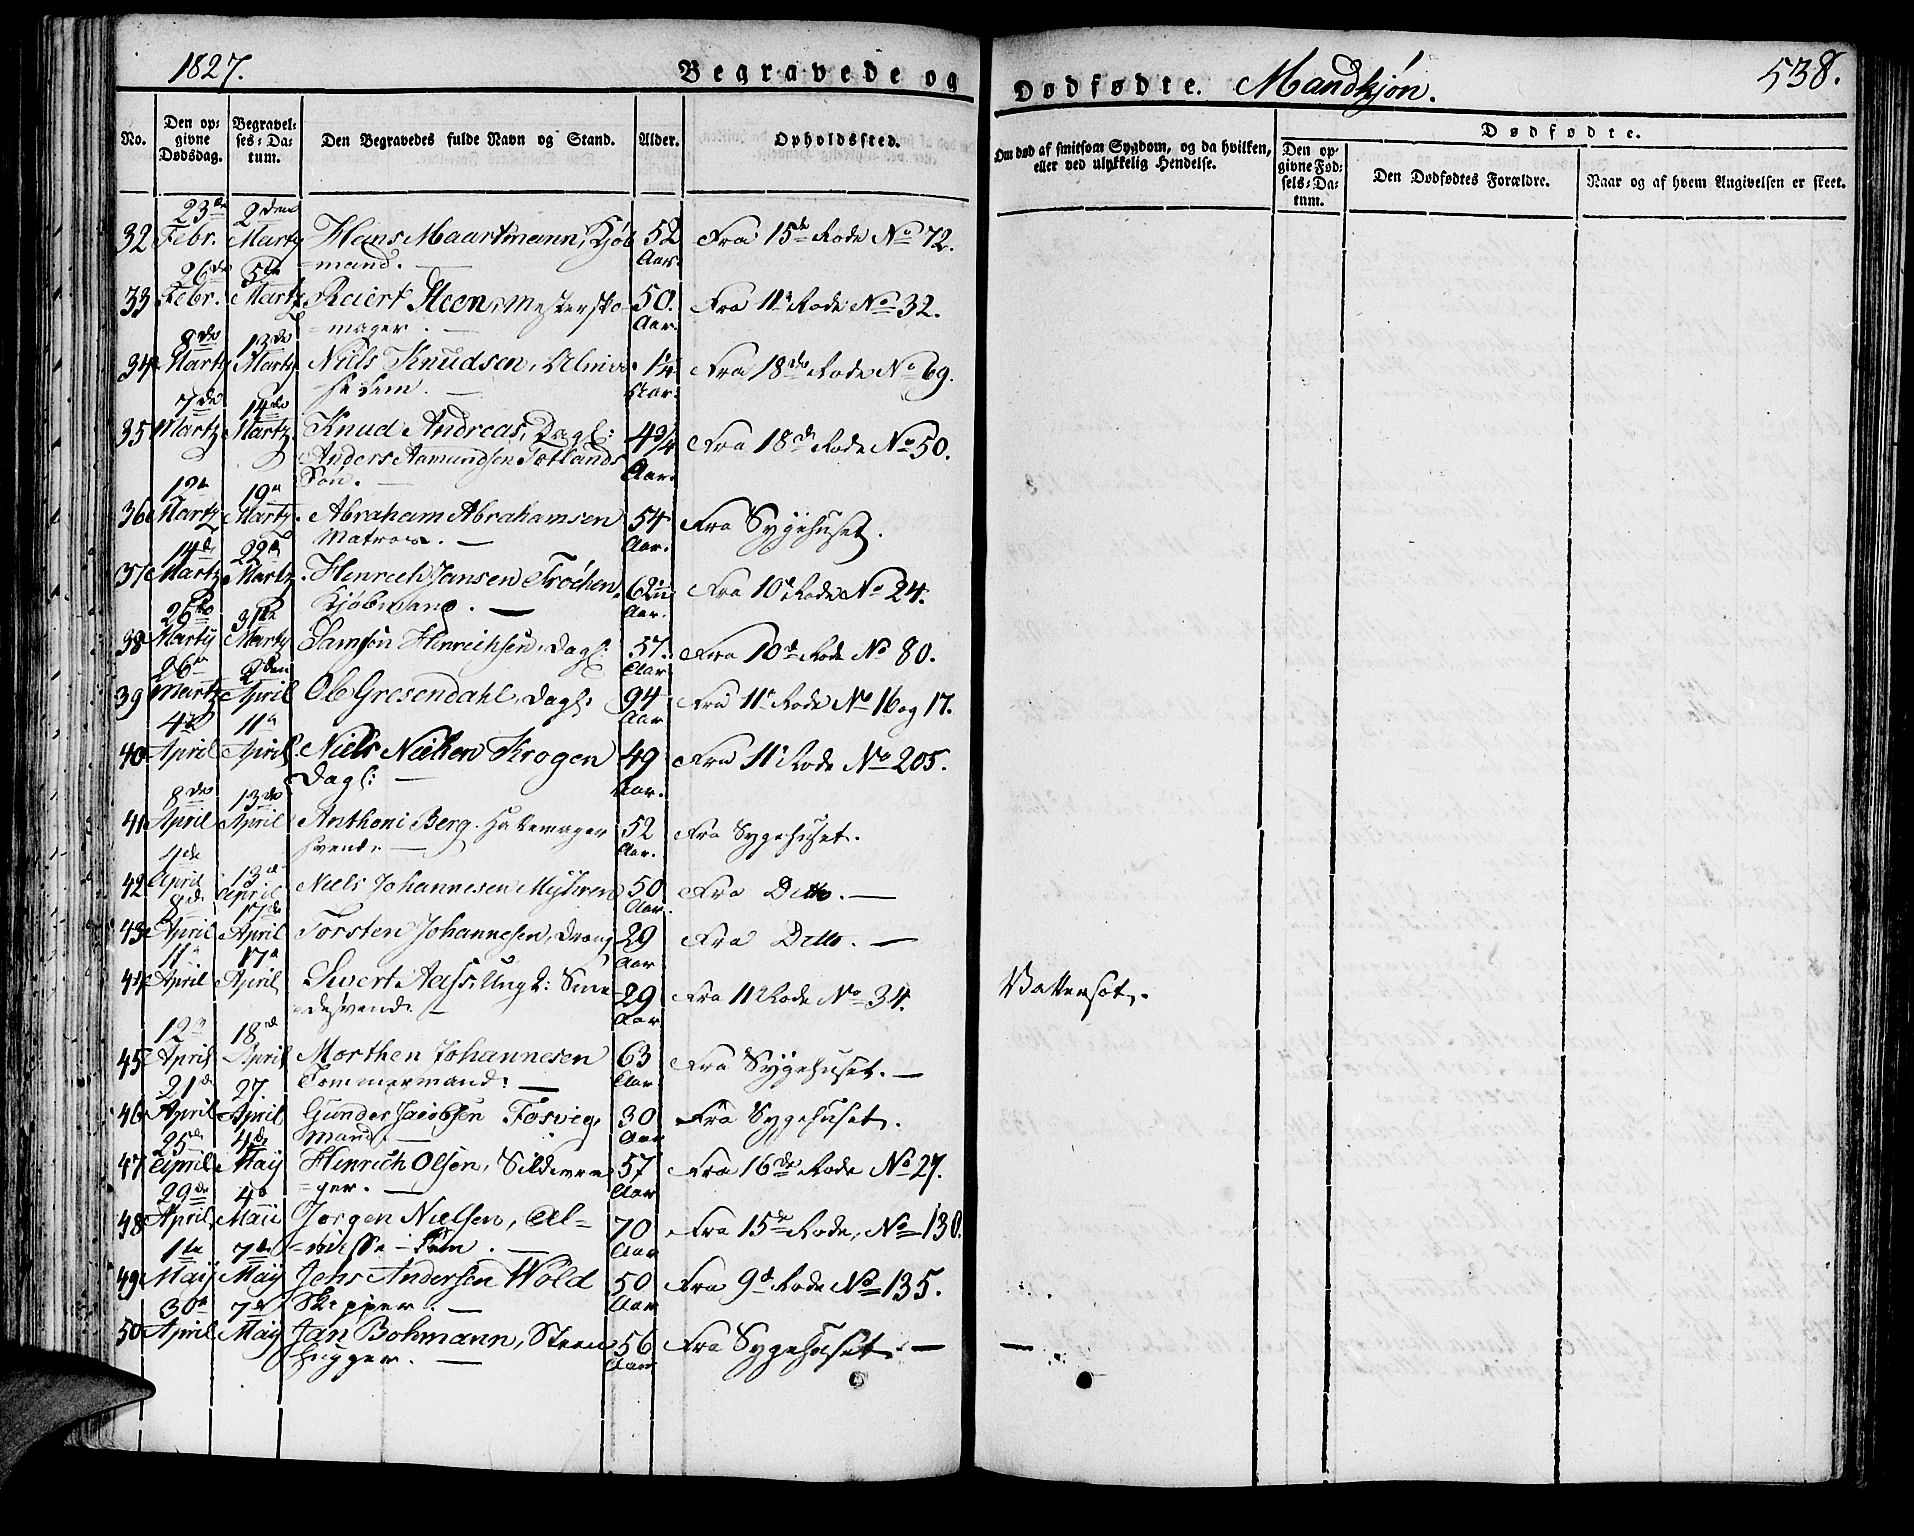 1827.
Begravede og Dødfødte. Mandkjøn. 538.
No.
Den opgivne Dødsdag.
Begravelses-Datum.
Den Begravedes fulde Navn og Stand.
Alder.
Opholdssted.
Om død af smitsom Sygdom, og da hvilken, eller ved ulykkelig Hendelse.
Dødfødte.
Den opgivne Fødsels-Datum.
Den Dødfødtes Forældre.
Naar og af hvem Angivelsen er skeet.
23de 2den
32 Febr. Martz Hans Maartmann, Kjøb 52 Fra 15de Rode No 72.
=mand. — Aar.
26de 5te
33 Febr. Martz Reiert Steen, Mestersko- 50. Fra 11te Rode No 32.
=mager. — Aar.
8de 13de
34 Martz Martz Niels Knudsen, Almis- 1/4 Fra 18de Rode No 69.
se Lem. — Aar.
7de 14de
35 Martz Martz. Knud Andreas, Dagl: 4 3/4 Fra 18de Rode No 50.
Anders Aamundsen Totlands Aar.
Søn. —
12te 19de
36 Martz Martz. Abraham Abrahamsen 54 Fra Sygehuset.
Matros. — Aar.
14de 22de
37 Martz Martz. Henrich Jansen 62 Fra 10de Rode No 24.
Kjøbmand. — Aar.
26de 31te
38 Martij Martz Samson Henrichsen, Dagl: 57. Fra 10de Rode No 80.
Aar
26de 2den
39 Martz April Ole Gresendahl, Dagl: 94 Fra 11te Rode No 16 og 17.
Aar
4de 11te
40 April April Niels Nielsen Krogen 49 Fra 11te Rode No 205.
Dagl: — Aar.
8de 13de
41 April April Anthoni Berg. Hattemager 52 Fra Sygehuset.
svend. — Aar.
4de 13de
42 April April Niels Johannesen 50 Fra Ditto. —
Aar.
8de 17de
43 April April Torsten Johannesen, Dreng 29 Fra Ditto. —
Aar
11te 17de
44 April April Sivert Aass, Ungk: Sme- 29 Fra 11te Rode No 34. Vattersot.
desvend. — Aar
12te 18de
45 April April Morthen Johannesen 63 Fra Sygehuset. —
Tømmermand. — Aar
21de 27.
46 April April Gunder Jacobsen Fosvig, 30 Fra Sygehuset.
Mand. — Aar
25de 4de
47 April Maij Henrich Olsen, Sildevra- 57 Fra 16de Rode No 27.
=ger. — Aar
29de 4de
48 April Maii Jørgen Nielsen, Al- 70 Fra 15de Rode, No 130.
=misse-Lem. — Aar
1te 7de
49 Maij Maij Jens Andersen Wold 50 Fra 9de Rode No 135.
Skipper. — Aar
30te 7de
50 April Maij Jan Bohmann, Steen 56 Fra Sygehuset. — —
hugger. — Aar